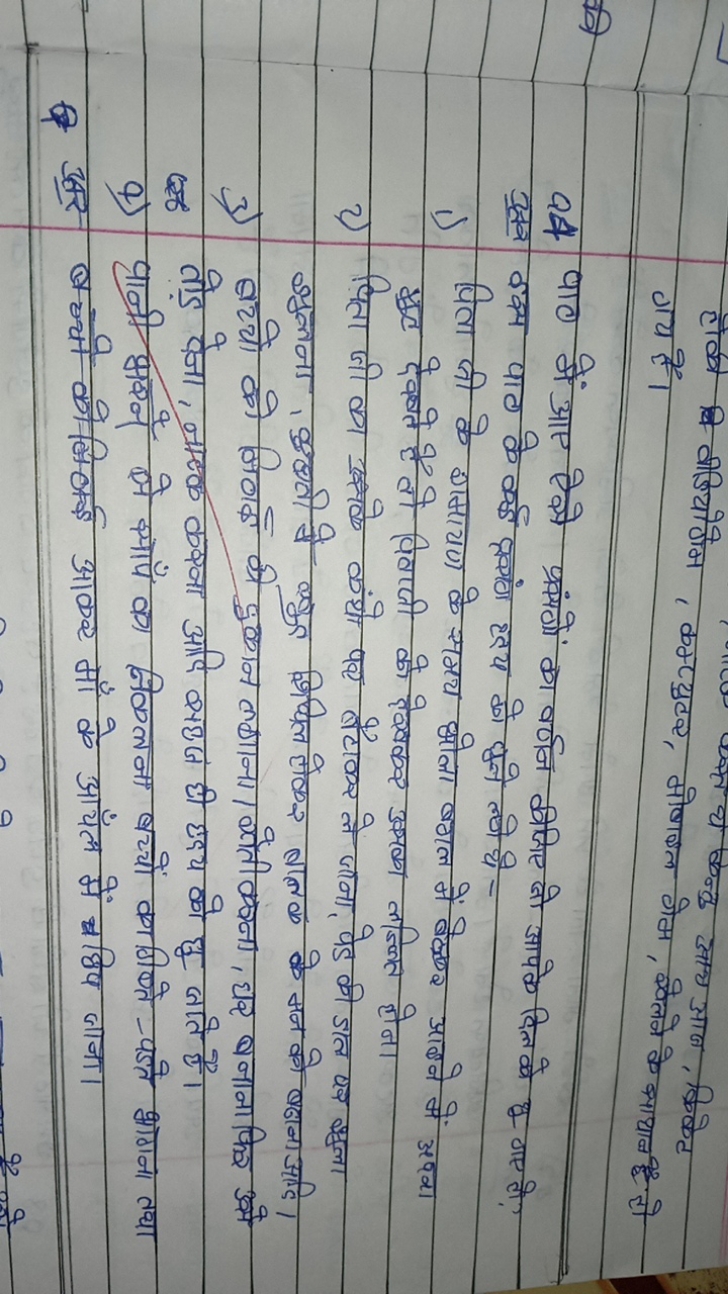 होकी व वीडियोगेम, कम्प्यूटर, मोबाइल गेम, खेलने के साधन है हो
गये हैं।
Q4 पाठ में आए ऐसे प्रसंगों का वर्णन कीजिए जो आपके दिल को छू गए हो,
उत्तर इस पाठ के कई प्रसंग ह्रदय को छूने लगे थे -
1) पिता जी के रामायण के समय भोला बगल में बैठकर आईने में अपना
मुँह देखते है तो पिताजी को देखकर उसका लज्जित होना।
2) पिता जी का उसके कंधो पर बैठाकर ले जाना, पेड़ की डाल पर झूला
झुलाना, कुश्ती में खुद शिथिल होकर बालक के मन को बढ़ाना आदि।
3) बच्चो की मिठाई की दुकान लगाना, खेती करना, घर बनाना फिर उसे
तोड़ देना, नाटक करना आदि सहज ही ह्रदय को छू जाते है।
4) पानी डालने से साँप का निकलना बच्चों का गिरते-पड़ते भागना तथा
उत्तर बच्चो की सिसकते आकर माँ के आंचल में छिप जाना।